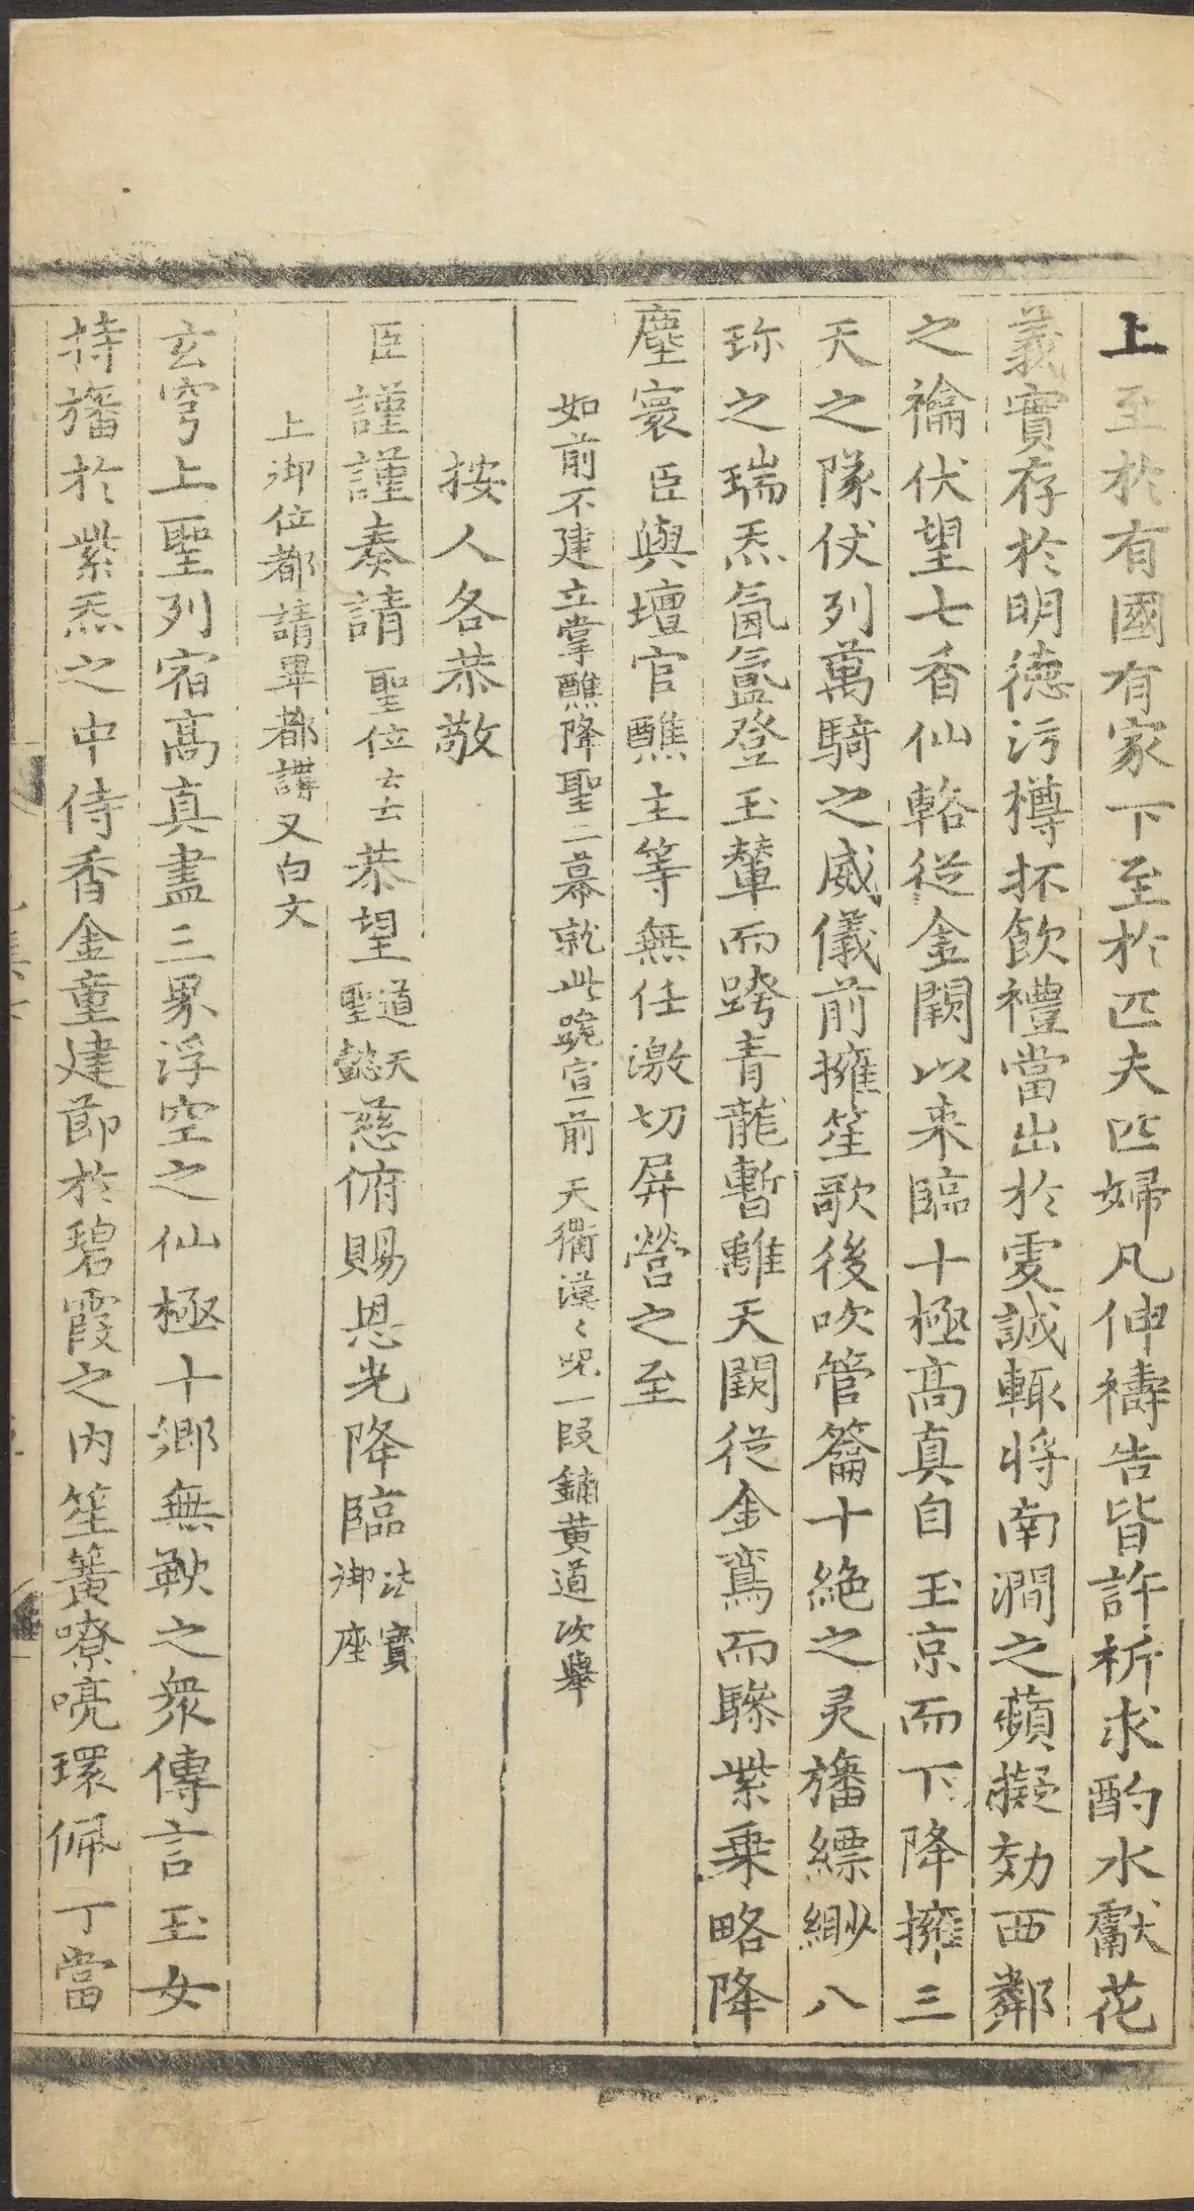 上至於有國有家下至於匹夫匹婦凡伸禱告皆許祈求酌水獻花
義實存於明德污樽抔飲禮當出於䖍誠輒將南澗之蘋擬効西鄰
之禴伏望七香仙輅從金闕以来臨十極高真自玉京而下降擁三
天之隊仗列萬騎之威儀前擁笙歌後吹管籥十絶之灵旛縹緲八
珎之瑞炁氤氳登玉輦而跨青龍暫離天闕從金鸞而驂紫乗略降
塵寰臣與壇官醮主等無任激切屏營之至
如前不建立掌醮降聖二幕就此跪宣前天衢漠〻呪一段鋪黄道次舉
按人各恭敬
臣謹謹奏請聖位云云恭望道天聖懿慈俯賜恩光降臨法寳御座
上御位都請畢都講又白文
玄穹上聖列宿高真盡三界浮空之仙極十鄉無鞅之衆傳言玉女
持旛於紫炁之中侍香金童建節於碧霞之内笙簧嘹喨環佩丁當